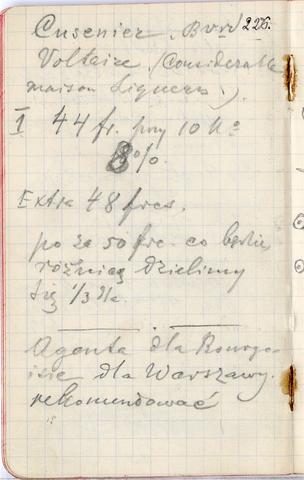 Cusenier. Bvrd 226.
Voltaire. (Considerable
maison Liqueurs).
I 44 fr. przy 10 Ko
8%.
Extra 48 frcs.
po za 50 frc. co będzie
różnicą dzielimy
się 1/3 2/3.
Agenta dla Bourgo-
isie dla Warszawy.
rekomendować